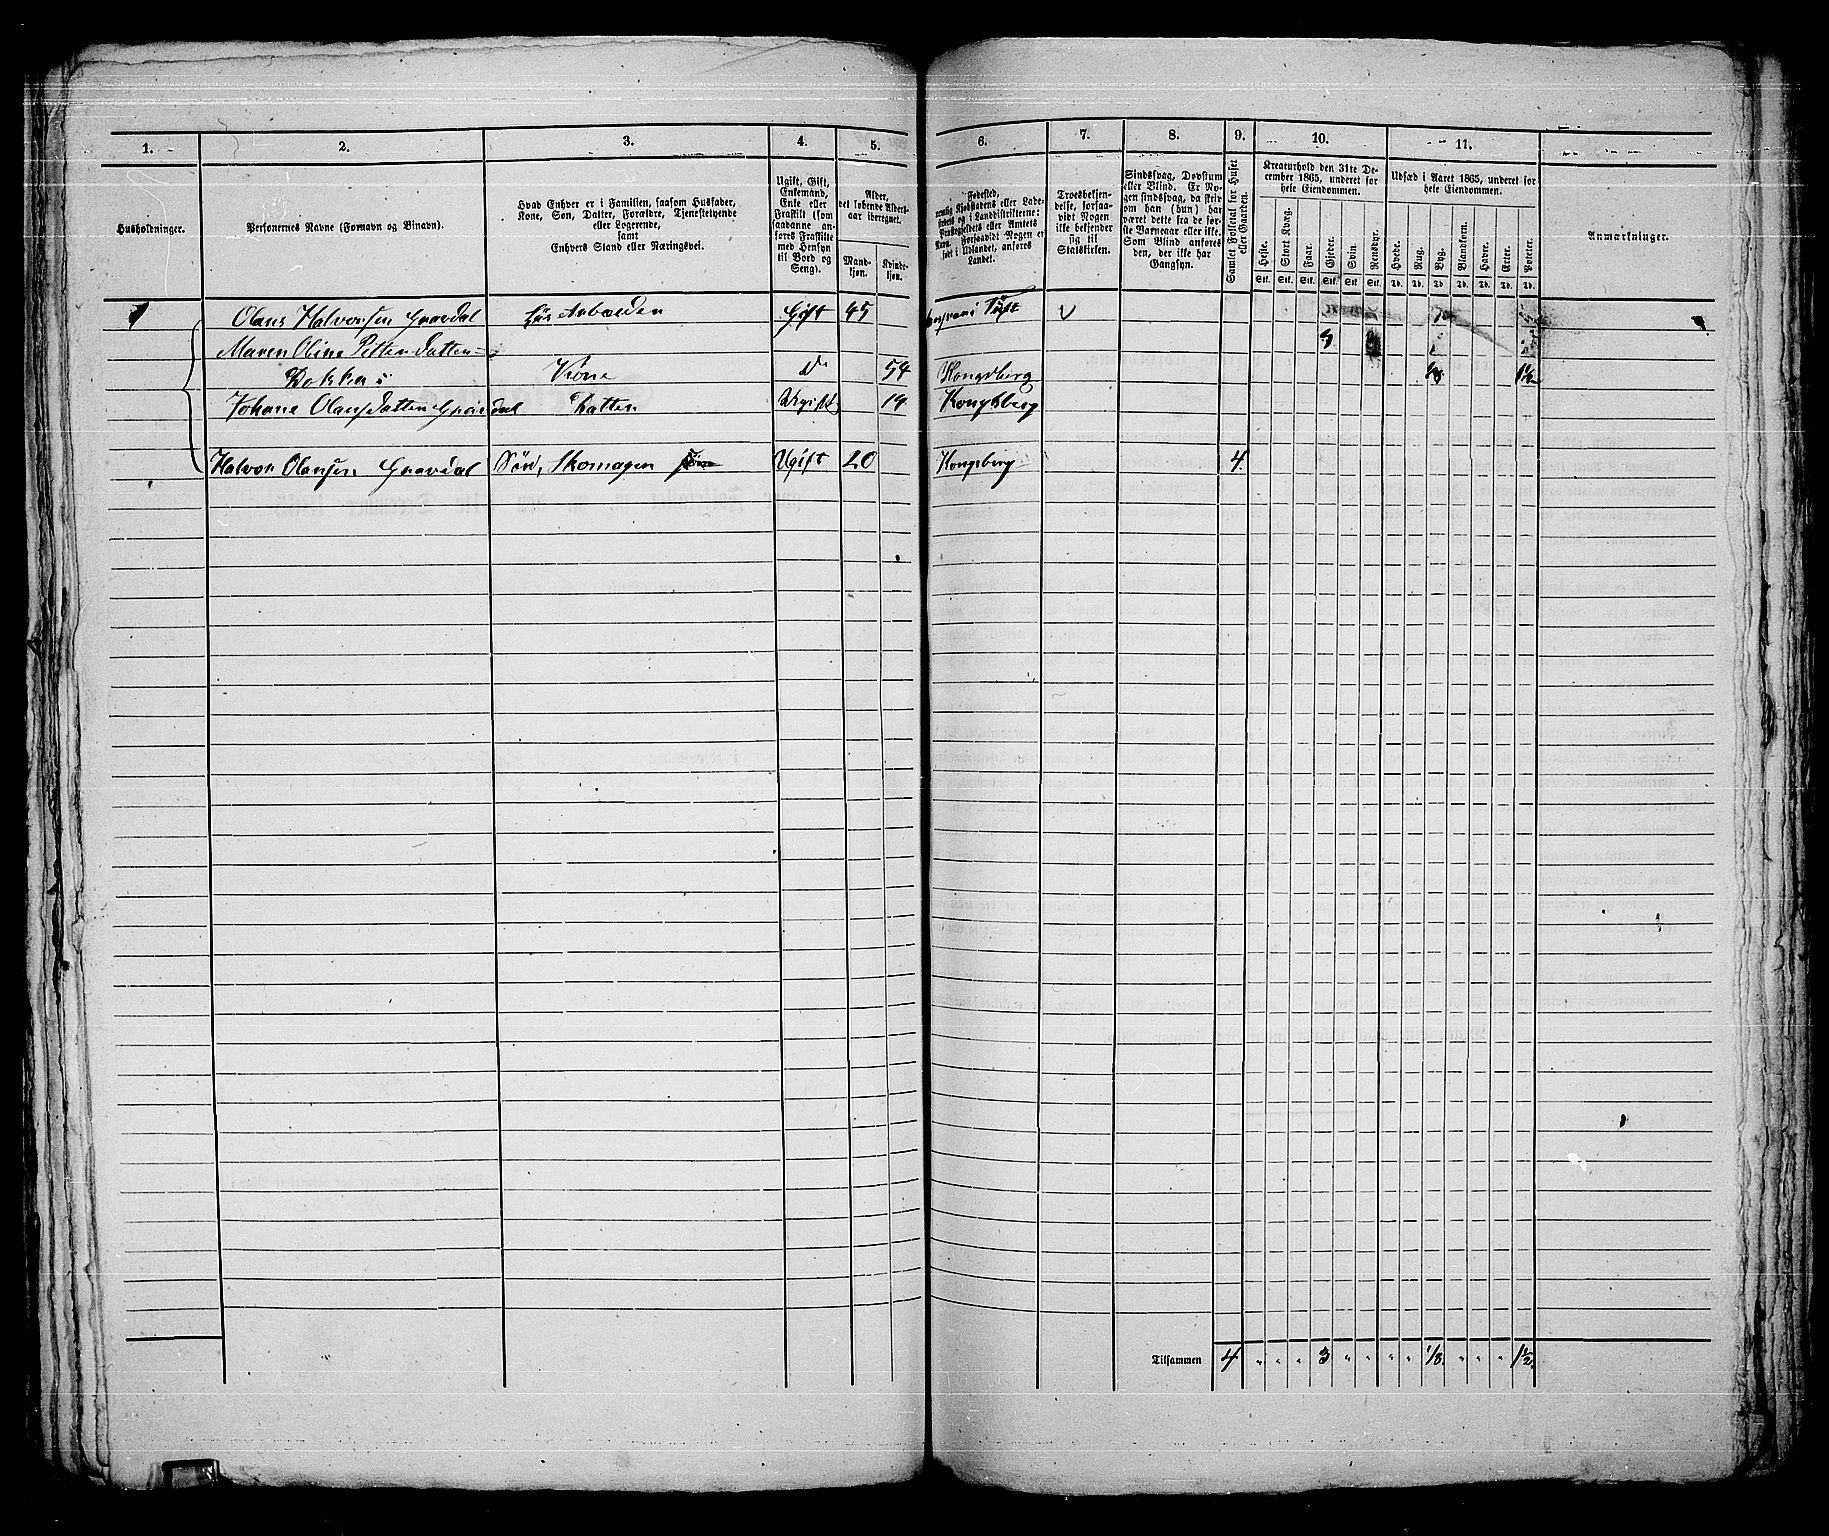 1. 2. 3. 4. 5. 6. 7. 8. 9. 10. 11.
Husholdninger.
Personernes Navne (Fornavn og Binavn).
Hvad Enhver er i Familien, saasom Husfader,
Kone, Søn, Datter, Forældre, Tjenestetyende
eller Logerende,
samt
Enhvers Stand eller Næringsvei.
Ugift, Gift,
Enkemand,
Enke eller
Fraskilt (som
saadanne an-
føres Fraskilte
med Hensyn
til Bord og
Seng).
Alder,
det løbende Alders-
aar iberegnet.
Mand-
kjøn.
Kvinde-
kjøn.
Fødested,
nemlig Kjøbstadens eller Lade-
stedets og i Landdistrikterne:
Præstegjeldets eller Amtets
Navn. Forsaavidt Nogen er
født i Udlandet, anføres
Landet.
Troesbekjen-
delse, forsaa-
vidt Nogen
ikke bekjender
sig til
Statskirken.
Sindssvag, Døvstum
eller Blind. Er No-
gen sindssvag, da skriv
om han (hun) har
været dette fra de før-
ste Barneaar eller ikke.
Som Blind anføres
den, der ikke har
Gangsyn.
Samlet Folketal for Huset
eller Gaarden.
Kreaturhold den 31te De-
cember 1865, underet for
hele Eiendommen.
Heste. Stort Kvæg. Faar. Gjeder. Svin. Rensdyr.
Stk. Stk. Stk. Stk. Stk. Stk.
Udsæd i Aaret 1865, underet for
hele Eiendommen.
Hvede. Rug. Byg. Blandkorn. Havre. Erter. Poteter.
Td. Td. Td. Td. Td. Td. Td.
Anmærkninger.
1 Olans Halvorsen Gravdal Arbeider Gift 45 Tuft
Maren Oline Petterdatter 3
Bokker Kone Do 54 Kongsberg 1/8 1½
Johane Olansdatter Gravdal Datter Ugift 19 Kongsberg
Halvor Olansen Gravdal Søn, Skomager Ugift 20 Kongsberg 4
Tilsammen 4 " " " 3 " " " " 1/8 " " " 1½